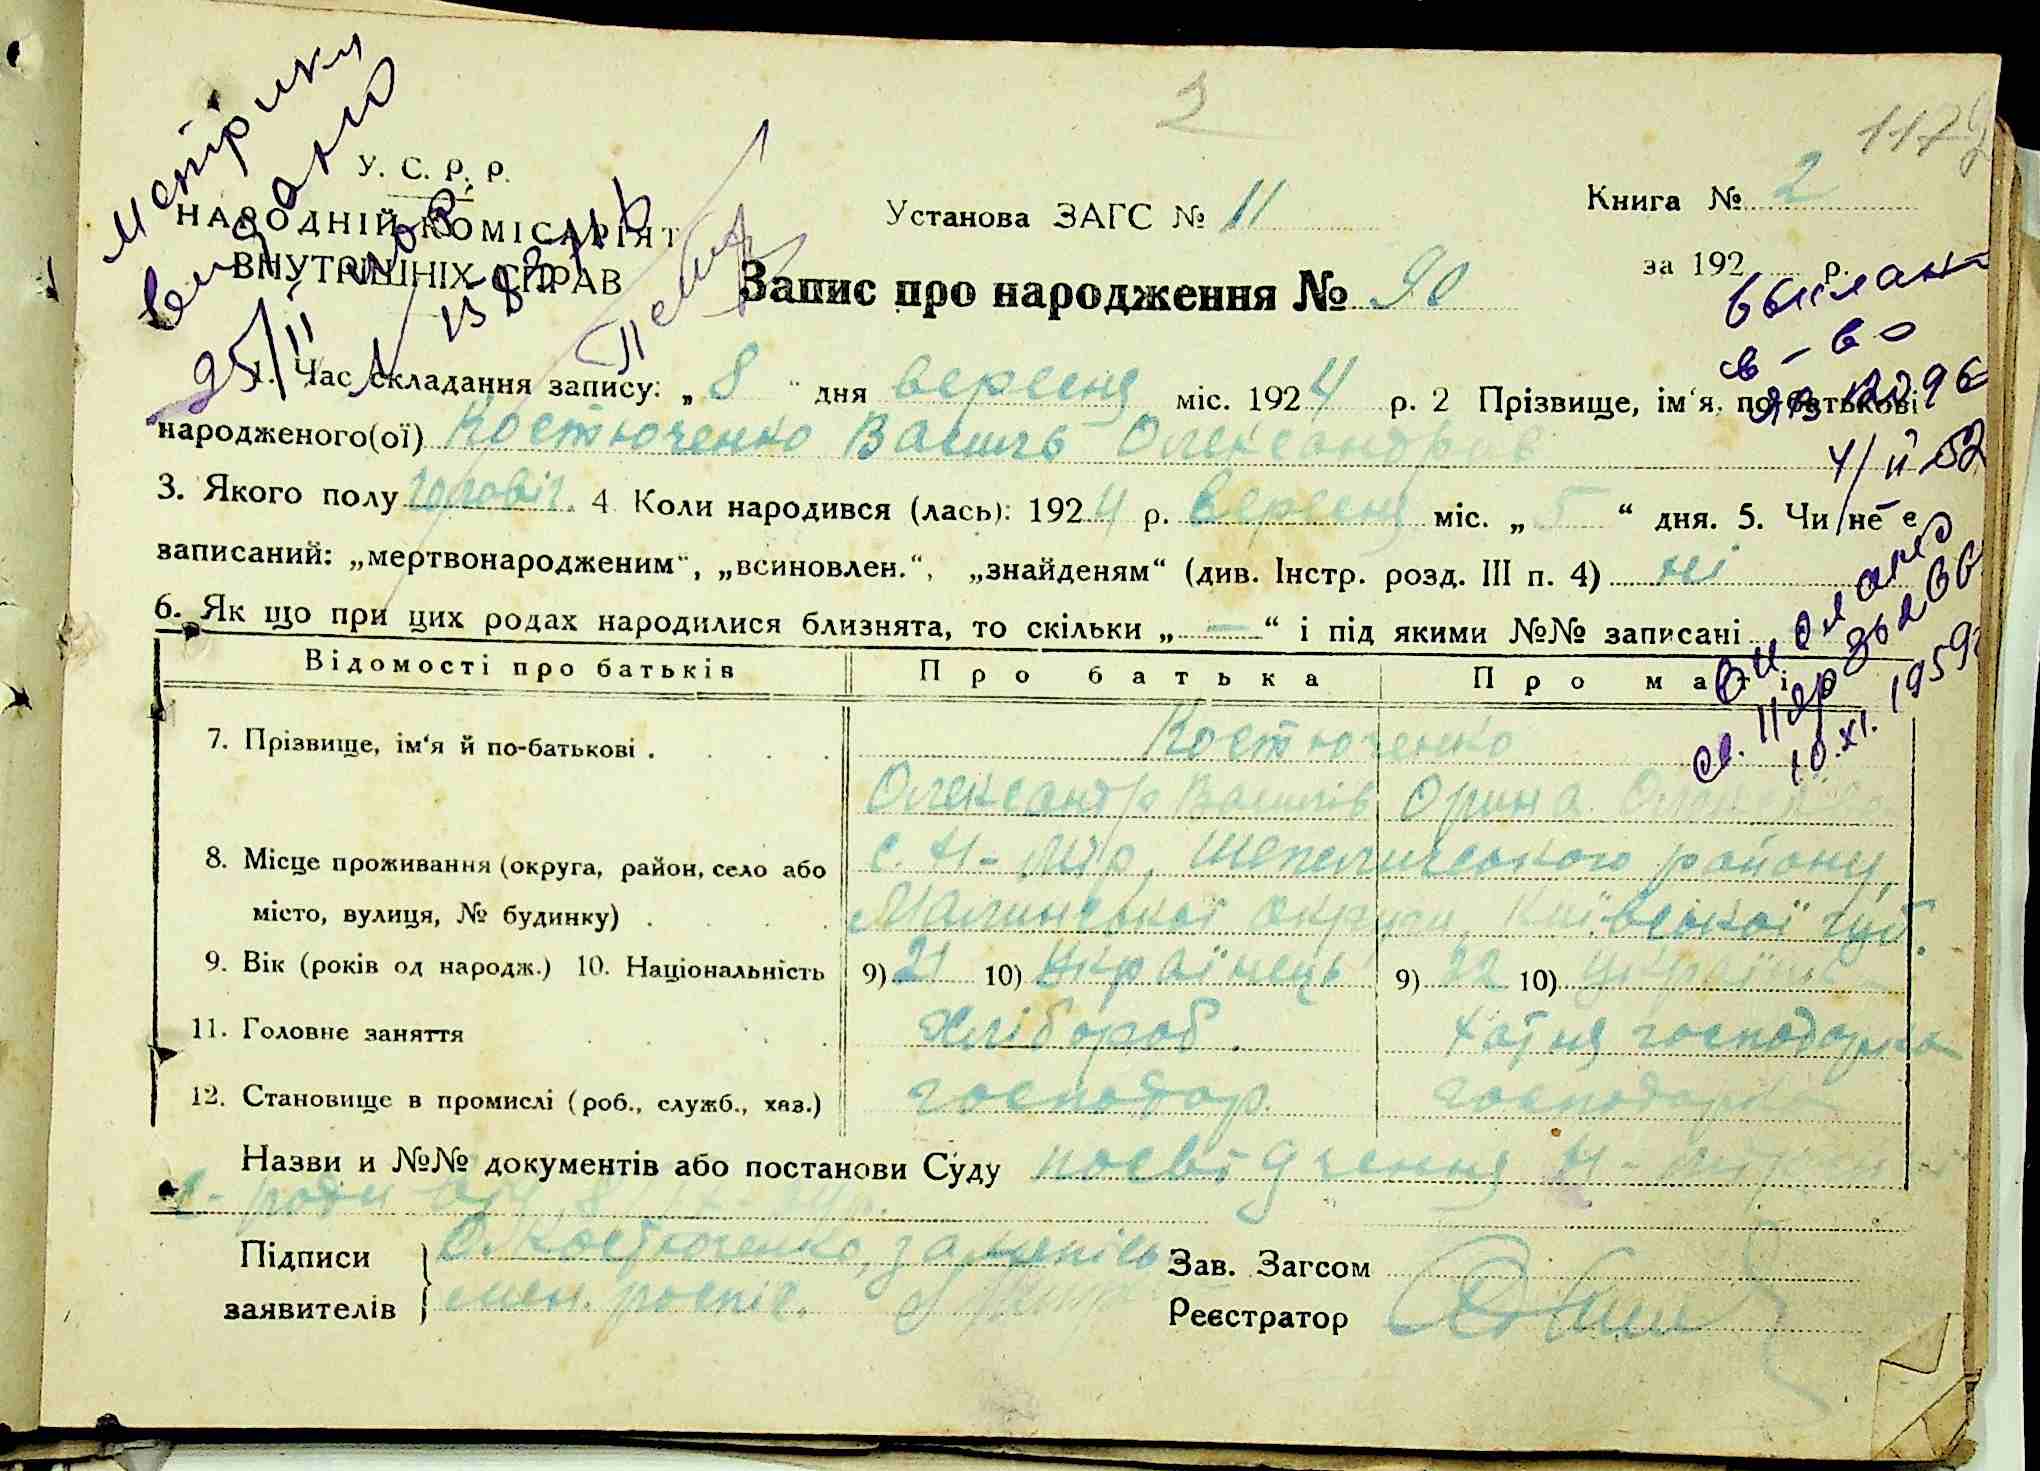 2
117
Метрику
видано
У. С. Р. Р.
НАРОДНІЙ КОМІСАРІЯТ
ВНУТРІШНІХ СПРАВ
25/II
Установа ЗАГС № 11
Книга № 2
за 192 р.
Запис про народження № 90
выслан
св-во
4/II 52
1. Час складання запису: „ 8 “ дня вересня міс. 1924 р. 2 Прізвище, ім‘я, по-батькові
народженого(ої) Костюченко Василь Олександрів
3. Якого полу чоловіч. 4 Коли народився (лась): 1924 р. вересня міс. „ 5 “ дня. 5. Чи не є
записаний: „мертвонародженим“, „всиновлен.“, „знайденям“ (див. Інстр. розд. III п. 4) ні
6. Як що при цих родах народилися близнята, то скільки „ — “ і під якими №№ записані
выслано
св.
10.XI. 1959
Відомості про батьків Про батька Про матір
7. Прізвище, ім‘я й по-батькові . Костюченко
Олександр Василів Орина
8. Місце проживання (округа, район, село або с. Н-Мір, Шепелицького району,
місто, вулиця, № будинку) . Малинської округи, Київської губ.
9. Вік (років од народж.) 10. Національність 9) 21 10) Українець 9) 22 10) Українка
11. Головне заняття Хлібороб. Хатня господарка
12. Становище в промислі (роб., служб., хаз.) господар. господарка
Назви и №№ документів або постанови Суду посвідчення Н-
с-ради від 8/IX-24р.
Підписи О. Костюченко, за
заявителів роспис.
Зав. Загсом
Реєстратор